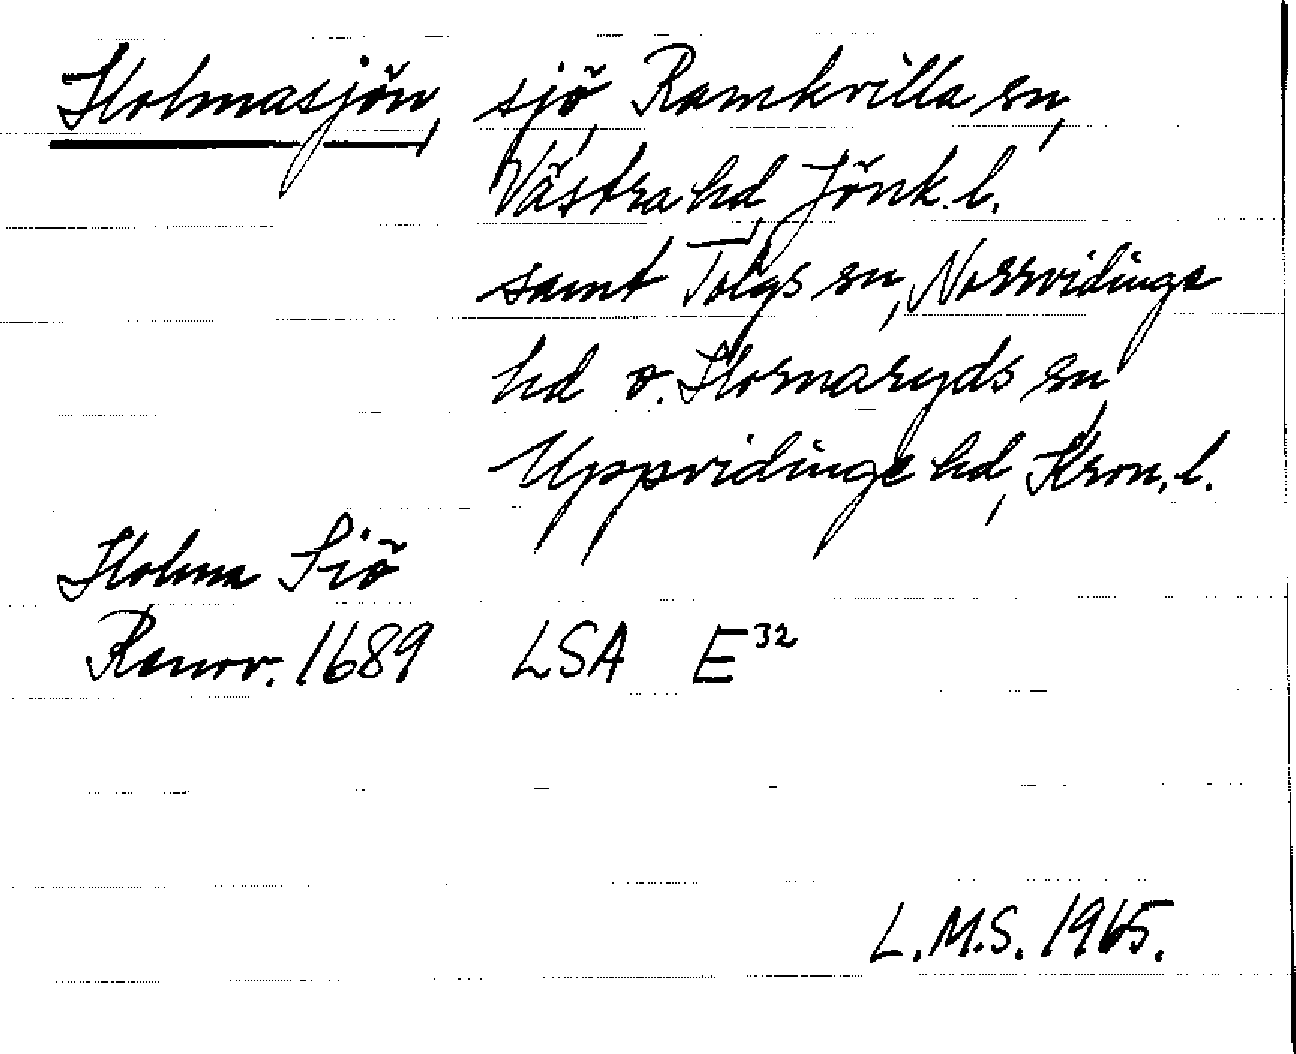 Holmasjön, sjö, Ramkvilla sn,
Västra hd, Jönk. l.
samt Tolgs sn, Norrvidinge
hd o. Hornaryds sn,
Uppvidinge hd, Kron. l.
Holma Siö
Ranrov. 1689 LSA E³²
L.M.S. 1965.